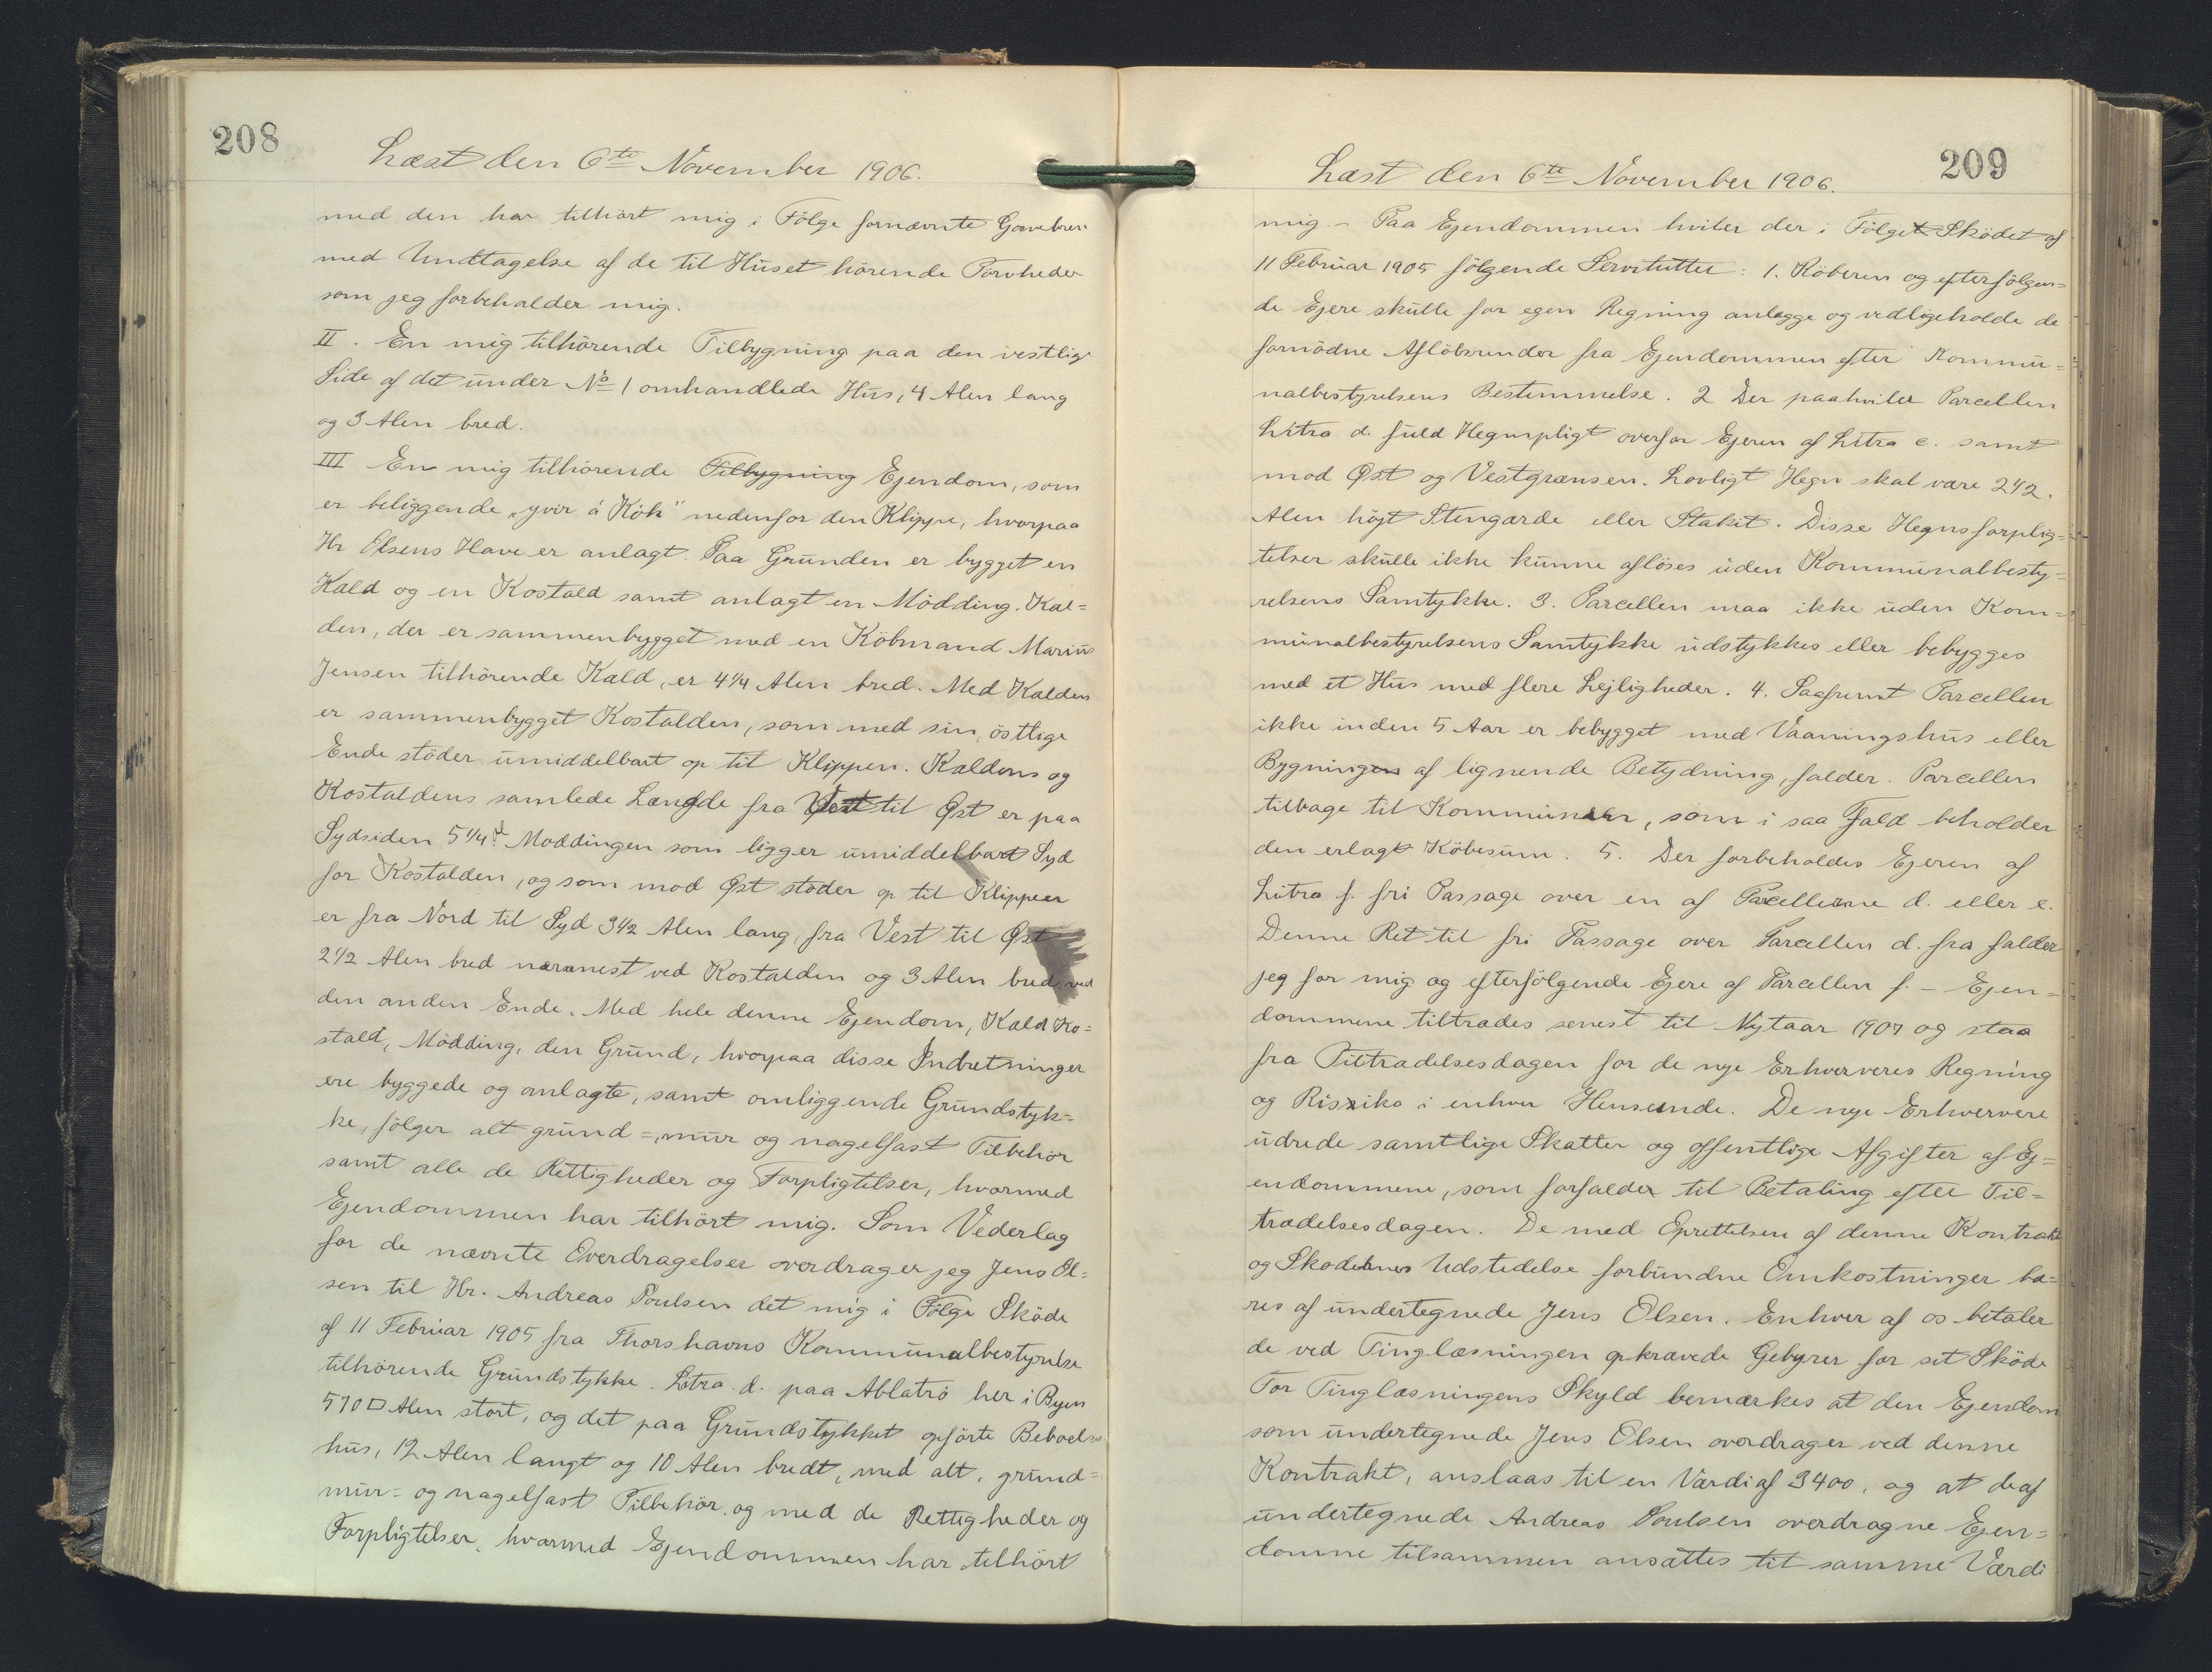 208
Læst den 6te November 1906.
med den har tilhørt mig i Følge fornævnte Gavebrev
med Undtagelse af de til Huset hørende Tørvheder
som jeg forbeholder mig.
II. En mig tilhørende Tilbygning paa den vestlige
Side af det under No 1 omhandlede Hus, 4 Alen lang
og 3 Alen bred.
III En mig tilhørende Tilbygning Ejendom, som
er beliggende „yvir á Kök" nedenfor den Klippe, hvorpaa
Hr Olsens Have er anlagt. Paa Grunden er bygget en
Kald og en Kostald samt anlagt en Mödding. Kal=
den, der er sammenbygget med en Köbmand Marius
Jensen tilhörende Kald, er 4 1/4 Alen bred. Med Kalden
er sammenbygget Kostalden, som med sin östlige
Ende stöder umiddelbart op til Klippen. Kaldens og
Kostaldens samlede Længde fra Vest til Øst er paa
Sydsiden 5 1/4 Moddingen som ligger umiddelbart Syd
for Kostalden, og som mod Øst støder op til Klippen
er fra Nord til Syd 3 1/2 Alen lang, fra Vest til Øst
2 1/2 Alen bred nærmest ved Kostalden og 3 Alen bred ved
den anden Ende. Med hele denne Ejendom, Kald Ko=
stald, Mödding, den Grund, hvorpaa disse Indretninger
ere byggede og anlagte, samt omliggende Grundstyk=
ke, fölger alt grund=, mur og nagelfast Tilbehör
samt alle de Rettigheder og Forpligtelser, hvormed
Ejendommen har tilhört mig. Som Vederlag
for de nævnte Overdragelser overdrager jeg Jens Ol=
sen til Hr. Andreas Poulsen det mig i Fölge Sköde
af 11 Februar 1905 fra Thorshavns Kommunalbestyrelse
tilhörende Grundstykke Litra d. paa Ablatrö her i Byen
570 □ Alen stort, og det paa Grundstykket opförte Beboelses
hus, 12 Alen langt og 10 Alen bredt, med alt, grund=
mur= og nagelfast Tilbehör og med de Rettigheder og
Forpligtelser, hvormed Ejendommen har tilhört
209
Læst den 6te November 1906.
mig. – Paa Ejendommen hviler der i Følge Sködet af
11 Februar 1905 fölgende Servitutter: 1. Köberen og efterfölgen=
de Ejere skulle for egen Regning anlægge og vedligeholde de
fornödne Aflöbsrender fra Ejendommen efter Kommu=
nalbestyrelsens Bestemmelse. 2 Der paahviler Parcellen
Litra d. fuld Hegnspligt overfor Ejeren af Litra e. samt
mod Øst og Vestgrænsen. Lovligt Hegn skal være 2 1/2.
Alen höjt Stengærde eller Stakit. Disse Hegnsforplig=
telser skulle ikke kunne aflöses uden Kommunalbesty=
relsens Samtykke. 3. Parcellen maa ikke uden Kom=
munalbestyrelsens Samtykke udstykkes eller bebygges
med et Hus med flere Lejligheder. 4. Saafremt Parcellen
ikke inden 5 Aar er bebygget med Vaaningshus eller
Bygningen af lignende Betydning, falder Parcellen
tilbage til Kommunen, som i saa Fald beholder
den erlagte Köbesum. 5. Der forbeholdes Ejeren af
Litra f. fri Passage over en af Parcellerne d. eller e.
Denne Ret til fri Passage over Parcellen d. fra falder
jeg for mig og efterfölgende Ejere af Parcellen f. – Ejen=
dommene tiltrædes senest til Nytaar 1907 og staa
fra Tiltrædelsesdagen for de nye Erhververes Regning
og Risziko i enhver Henseende. De nye Erhververe
udrede samtlige Skatter og offentlige Afgifter af Ej=
endommene, som forfalder til Betaling efter Til=
trædelsesdagen. De med Oprettelsen af denne Kontrakt
og Sködernes Udstedelse forbundne Omkostninger bæ=
res af undertegnede Jens Olsen. Enhver af os betaler
de ved Tinglæsningen opkrævede Gebyrer for sit Sköde
For Tinglæsningens Skyld bemærkes at den Ejendom
som undertegnede Jens Olsen overdrager ved denne
Kontrakt, anslaas til en Værdi af 3400, og at de af
undertegnede Andreas Poulsen overdragne Ejen=
domme tilsammen ansættes til samme Værdi